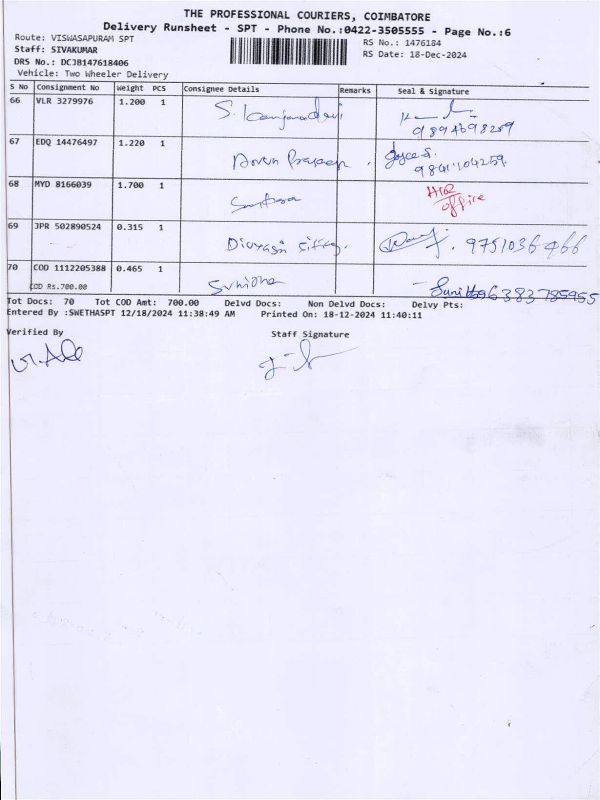 THE PROFESSIONAL COURIERS, COIMBATORE
Delivery Runsheet - SPT - Phone No.:0422-3505555 - Page No.:6
Route: VISWASAPURAM SPT
RS No.: 1476184
Staff: SIVAKUMAR
RS Date: 18-Dec-2024
DRS No.: DCJB147618406
Vehicle: Two Wheeler Delivery
S No Consignment No Weight PCS Consignee Details Remarks Seal & Signature
66 VLR 3279976 1.200 1 S. Kanjanadevi
9894698259
67 EDQ 14476497 1.220 1 Joyce S.
9841104259
68 MYD 8166039 1.700 1
office
69 JPR 502890524 0.315 1 9751036466
70 COD 1112205388 0.465 1 Sunitha 6383785955
COD Rs.700.00
Tot Docs: 70 Tot COD Amt: 700.00 Delvd Docs: Non Delvd Docs: Delvy Pts:
Entered By :SWETHASPT 12/18/2024 11:38:49 AM Printed On: 18-12-2024 11:40:11
Verified By Staff Signature